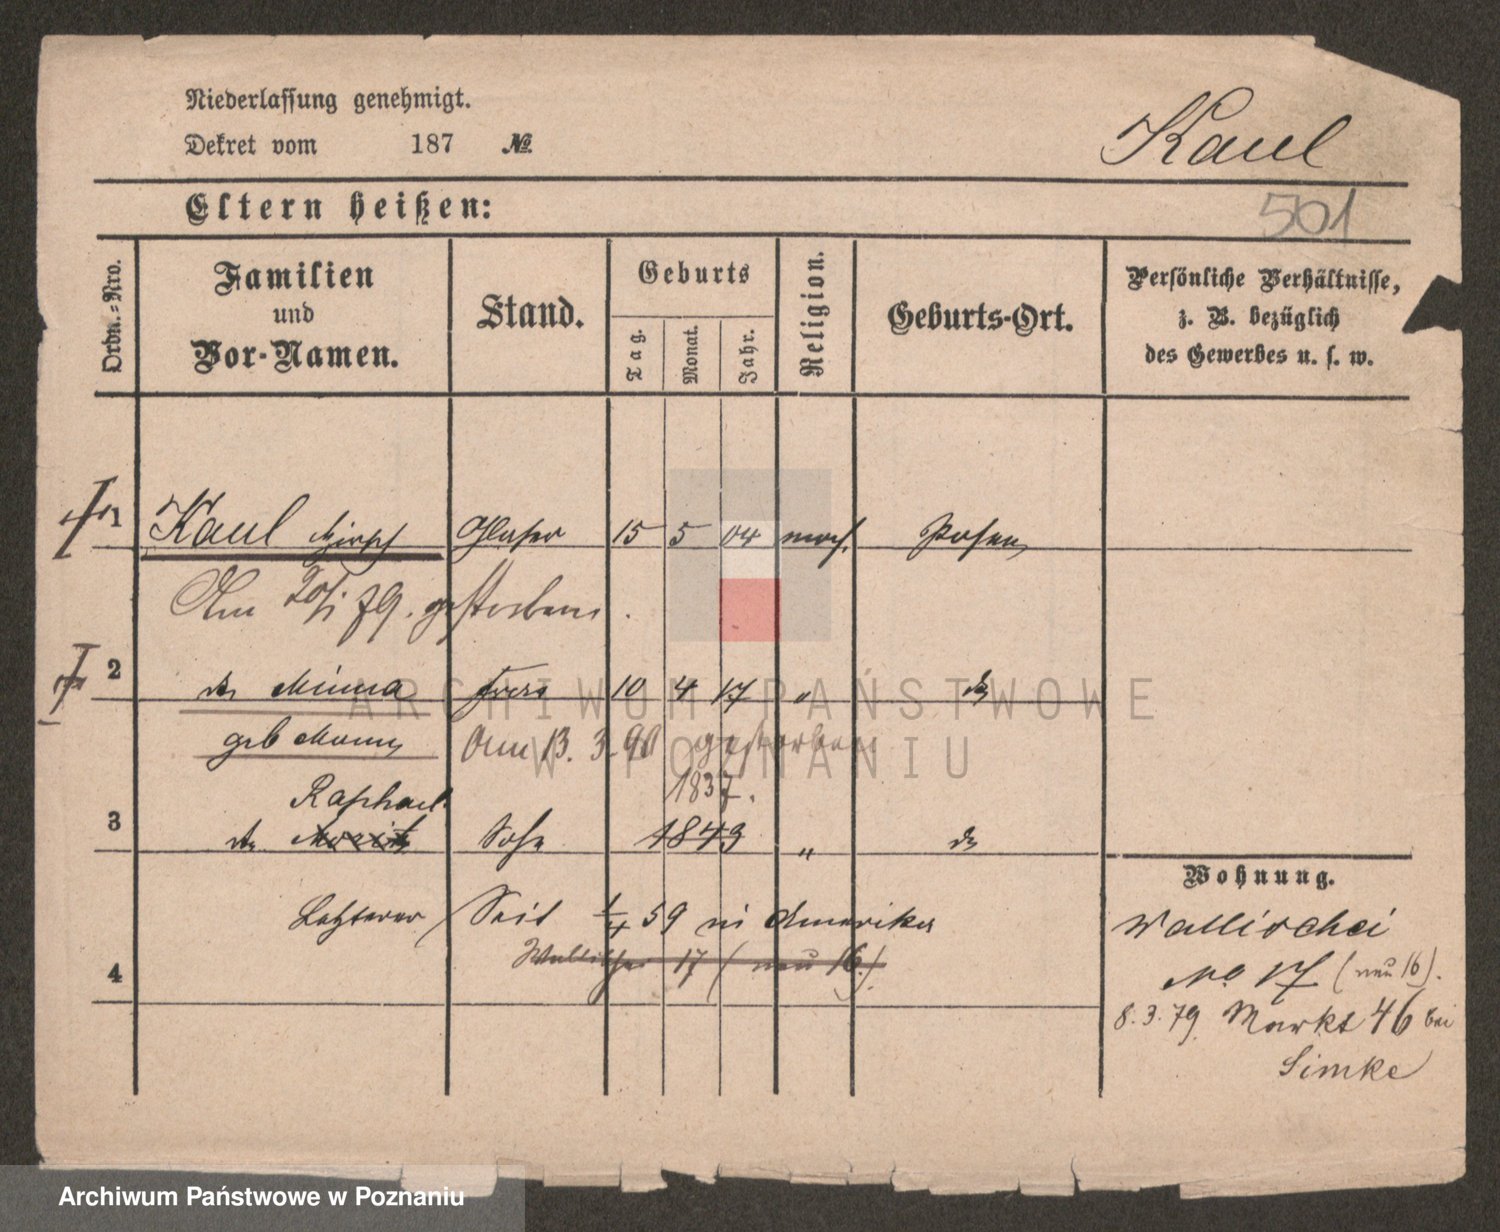 Niederlassung genehmigt.
Dekret vom 187 №.
Kaul
Eltern heißen:
501
Ordn.-Nro.
Familien
und
Vor-Namen.
Stand.
Geburts
Tag.
Monat.
Jahr.
Religion.
Geburts-Ort.
Persönliche Verhältnisse,
z. B. bezüglich
des Gewerbes u. s. w.
1 Kaul Hirsch Glaser 15 5 04 mos. Posen
Am 20/1 79. gestorben.
2 do Minna Frau 10 4 17 " do
geb Am 13. 3. 90 gestorben
Raphael 1837.
3 do Moritz Sohn 1843 " do
Letzterer Seit 1/4 59 in Amerika
Wallischei 17 (neu 16.)
4
Wohnung.
Wallischei
No 17 (neu 16).
8.3.79. Markt 46 bei
Simke
ARCHIWUM PAŃSTWOWE
W POZNANIU
Archiwum Państwowe w Poznaniu